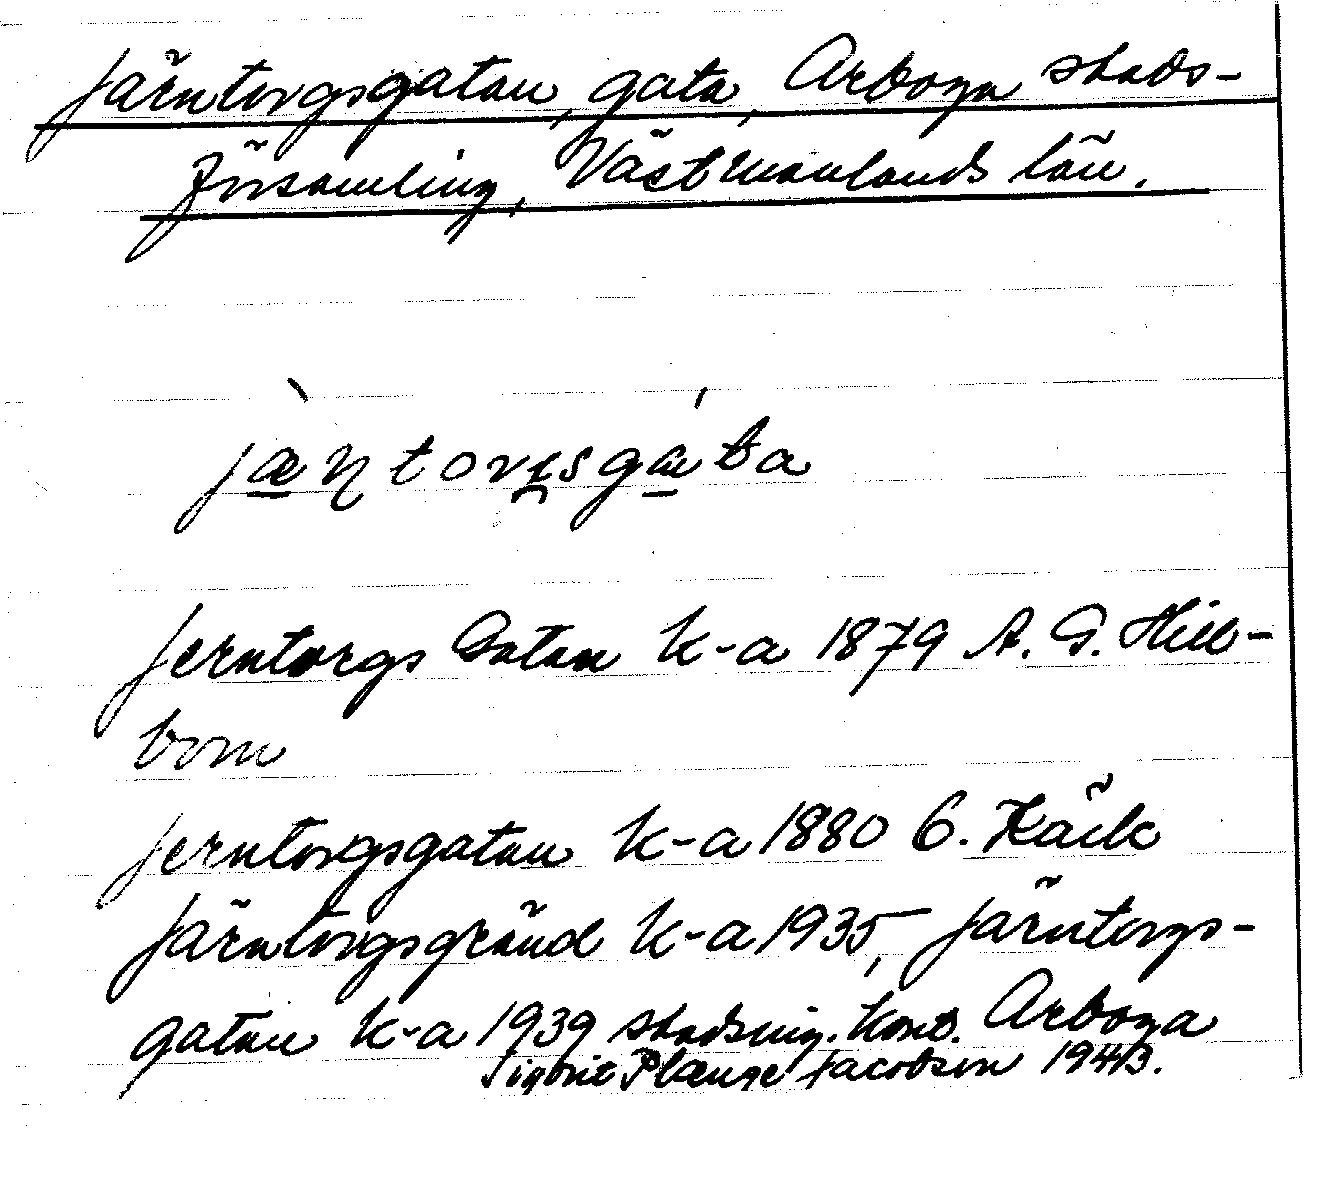 Järntorgsgatan, gata, Arboga stads-
församling, Västmanlands län.
jæ̀ɳtorɡ̯sgáta
Jerntorgs Gatan k-a 1879 A. G. Hell-
bom
Jerntorgsgatan k-a 1880 C. Käck
Järntorgsgränd k-a 1935, Järntorgs-
gatan k-a 1939 stadsing. kont. Arboga
Sigbrit Plænge Jacobson 1943.